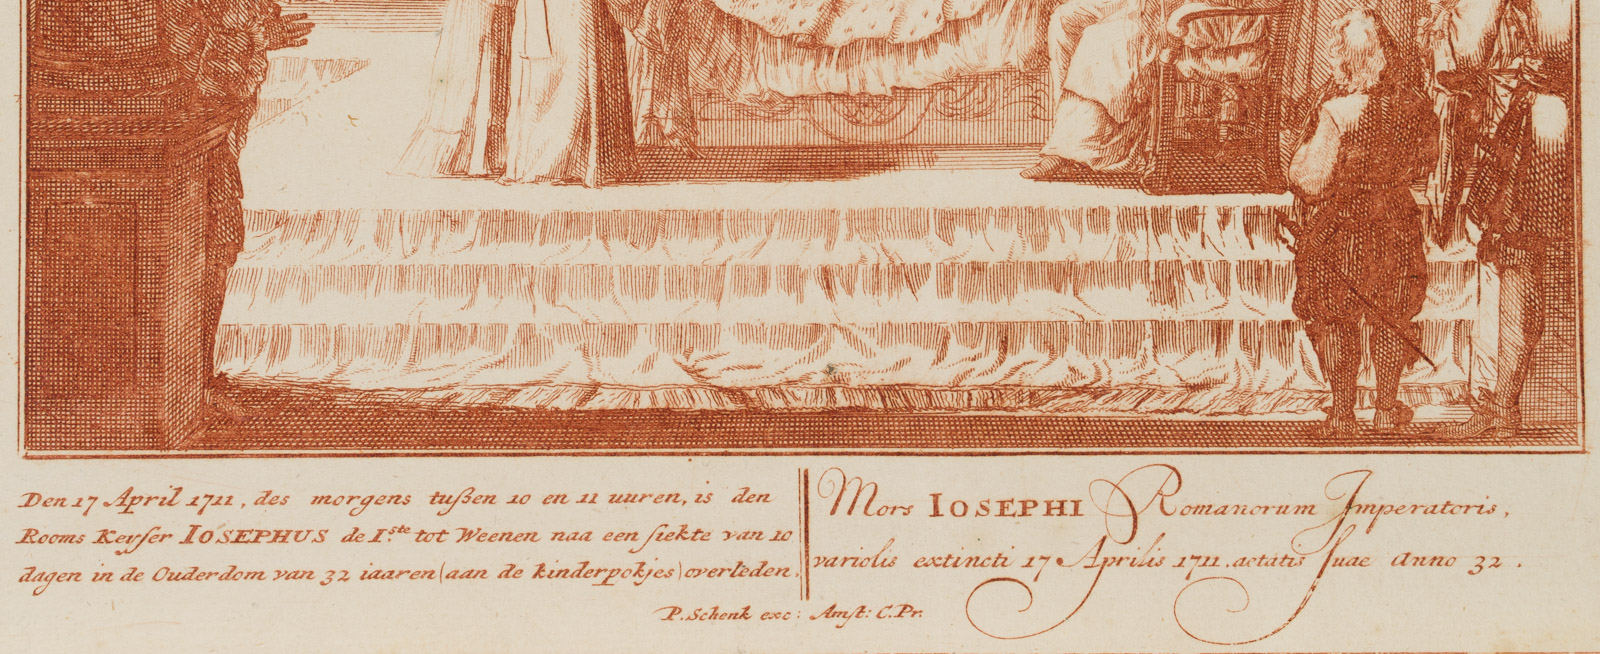 Den 17 April 1711, des morgens tußen 10 en 11 uuren, is den
Rooms Keyser IOSEPHUS de I.ste tot Weenen naa een siekte van 10
dagen in de Ouderdom van 32 iaaren (aan de kinderpokjes) overleden.
Mors IOSEPHI Romanorum Imperatoris,
variolis extincti 17 Aprilis 1711. aetatis suae Anno 32.
P. Schenk exc: Amst: C. Pr.